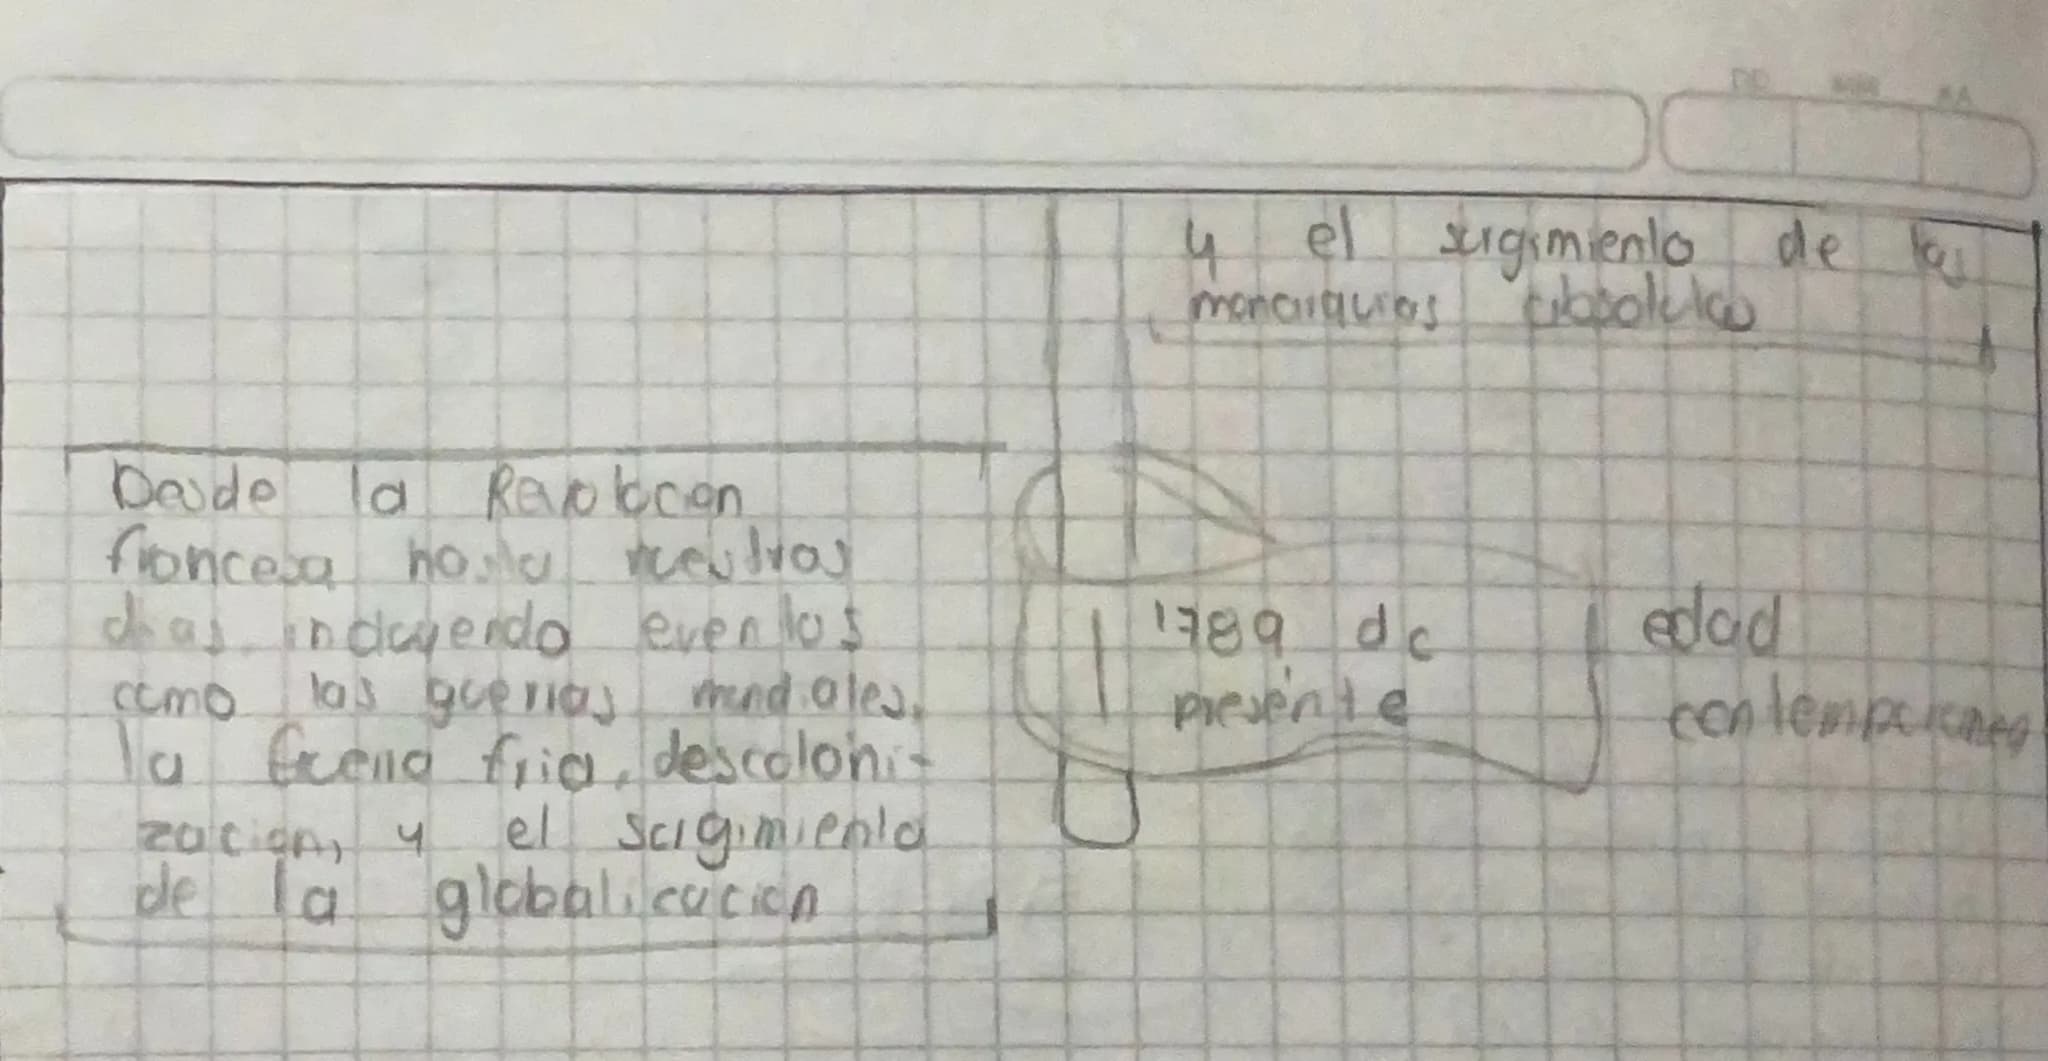 DD MM AA
y el surgimiento de las
monarquias absolutas
Desde la Revolucion
francesa hasta nuestros
dias incluyendo eventos
como las guerras mundiales,
la Guerra fria, descoloni-
zacion, y el surgimiento
de la globalicacion
1789 dc
presente
edad
contemporanea